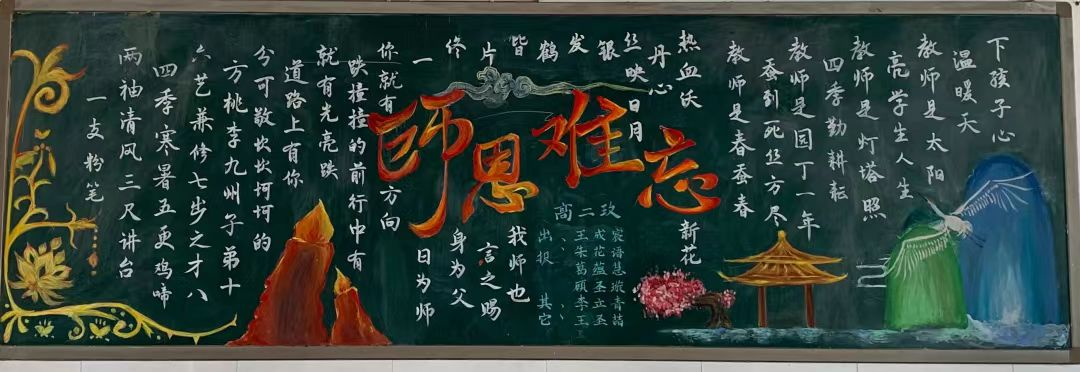 一支粉笔
两袖清风三尺讲台
四季寒暑五更鸡啼
六艺兼修七步之才八
方桃李九州子弟十
分可敬坎坎坷坷的
道路上有你
就有光亮跌
跌撞撞的前行中有
你就有方向
一日为师
终身为父
片言之赐
皆我师也
鹤
发
银
丝映日月
丹心
热血沃新花
教师是春蚕春
蚕到死丝方尽
教师是园丁一年
四季勤耕耘
教师是灯塔照
亮学生人生
教师是太阳
温暖天
下孩子心
师恩难忘
高二玖
出报
其它